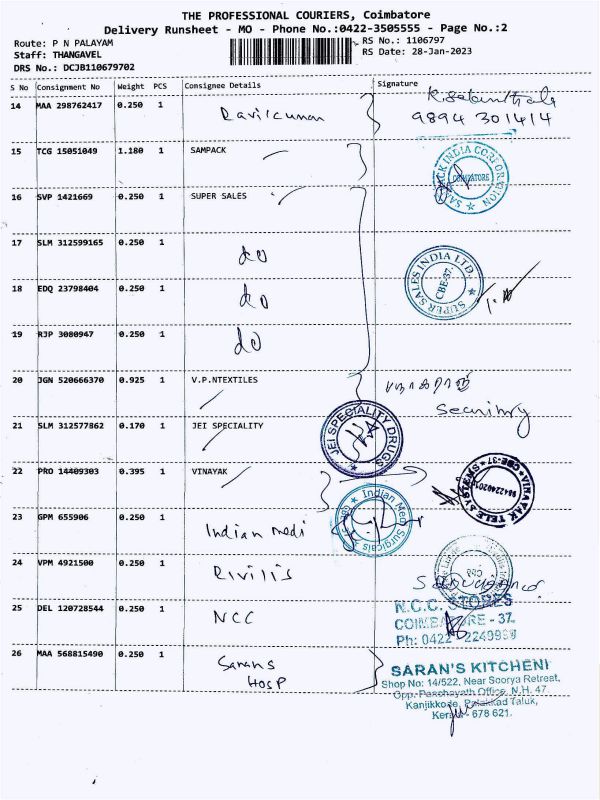 THE PROFESSIONAL COURIERS, Coimbatore
Delivery Runsheet - MO - Phone No.:0422-3505555 - Page No.:2
Route: P N PALAYAM
RS No.: 1106797
Staff: THANGAVEL
RS Date: 28-Jan-2023
DRS No.: DCJB110679702
S No Consignment No Weight PCS Consignee Details Signature
14 MAA 298762417 0.250 1 Ravikumar
9894 301414
15 TCG 15051049 1.180 1 SAMPACK
SAMPACK INDIA CORPORATION
COIMBATORE
16 SVP 1421669 0.250 1 SUPER SALES
17 SLM 312599165 0.250 1 do
SUPER SALES INDIA LTD.
CBE-37.
18 EDQ 23798404 0.250 1 do
19 RJP 3080947 0.250 1 do
20 JGN 520666370 0.925 1 V.P.NTEXTILES
Security
21 SLM 312577862 0.170 1 JEI SPECIALITY
JEI SPECIALITY DRUGS
22 PRO 14409303 0.395 1 VINAYAK
VINAYAK TELE SYSTEMS
CBE-37
23 GPM 655906 0.250 1 Indian Medi
Indian Medi Surgicals
24 VPM 4921500 0.250 1 Rivilis
25 DEL 120728544 0.250 1 NCC
N.C.C. STORES
COIMBATORE - 37.
Ph: 0422
26 MAA 568815490 0.250 1 Sarans
Hosp
SARAN'S KITCHENI
Shop No: 14/522, Near Soorya Retreat,
Opp. Panchayath Office, N.H. 47
Kanjikkode, Palakkad Taluk,
Kerala - 678 621.